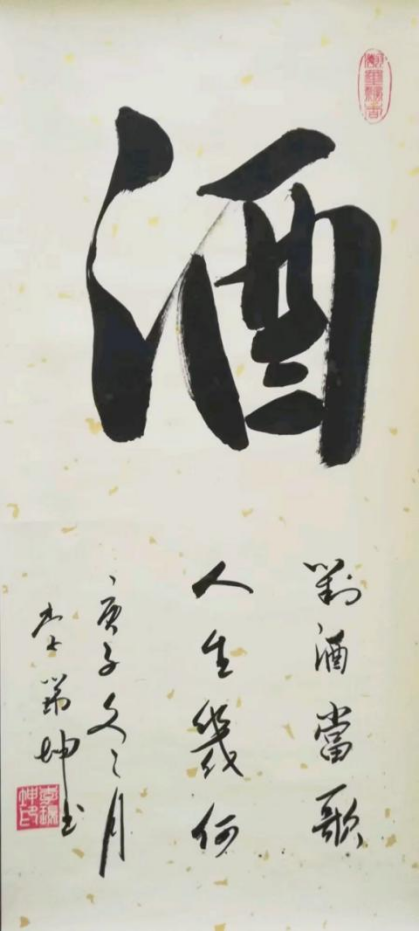 酒
對酒當歌
人生幾何
庚子冬月
坤书